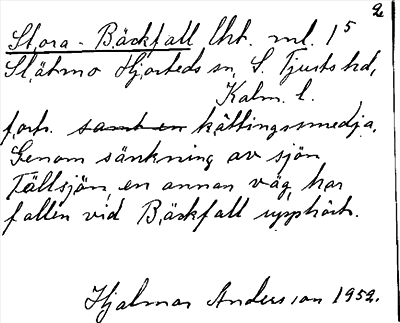 2
Stora - Bäckfall lht. ml. 1⁵
Slätmo Hjorteds sn, S. Tjusts hd,
Kalm. l.
forts. samt en kättingssmedja.
Genom sänkning av sjön
Fällsjön, en annan väg, har
fallen vid Bäckfall upphört.
Hjalmar Andersson 1952.